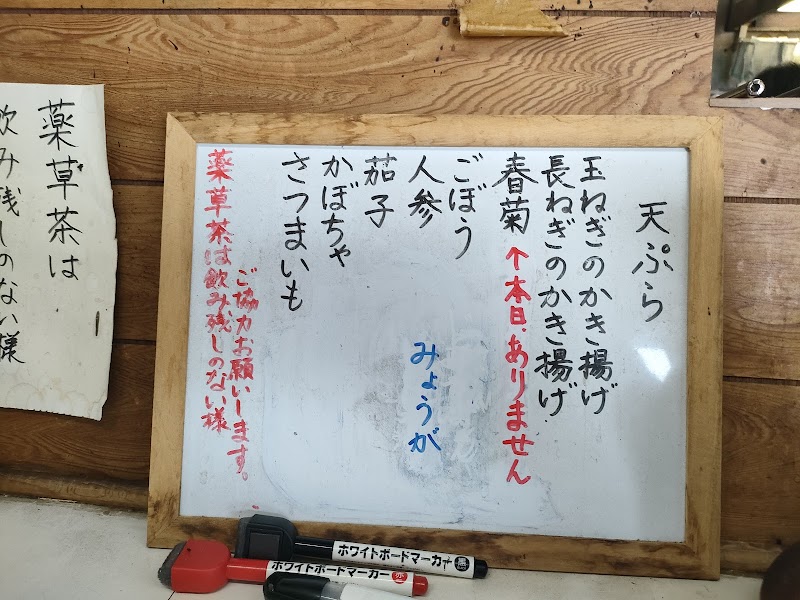 天ぷら
玉ねぎのかき揚げ
長ねぎのかき揚げ
春菊 ↑本日ありません
ごぼう
人参 みょうが
茄子
かぼちゃ
さつまいも
薬草茶は飲み残しのない様
ご協力お願いします。
薬草茶は
飲み残しのない様
ホワイトボードマーカー 黒
ホワイトボードマーカー 赤